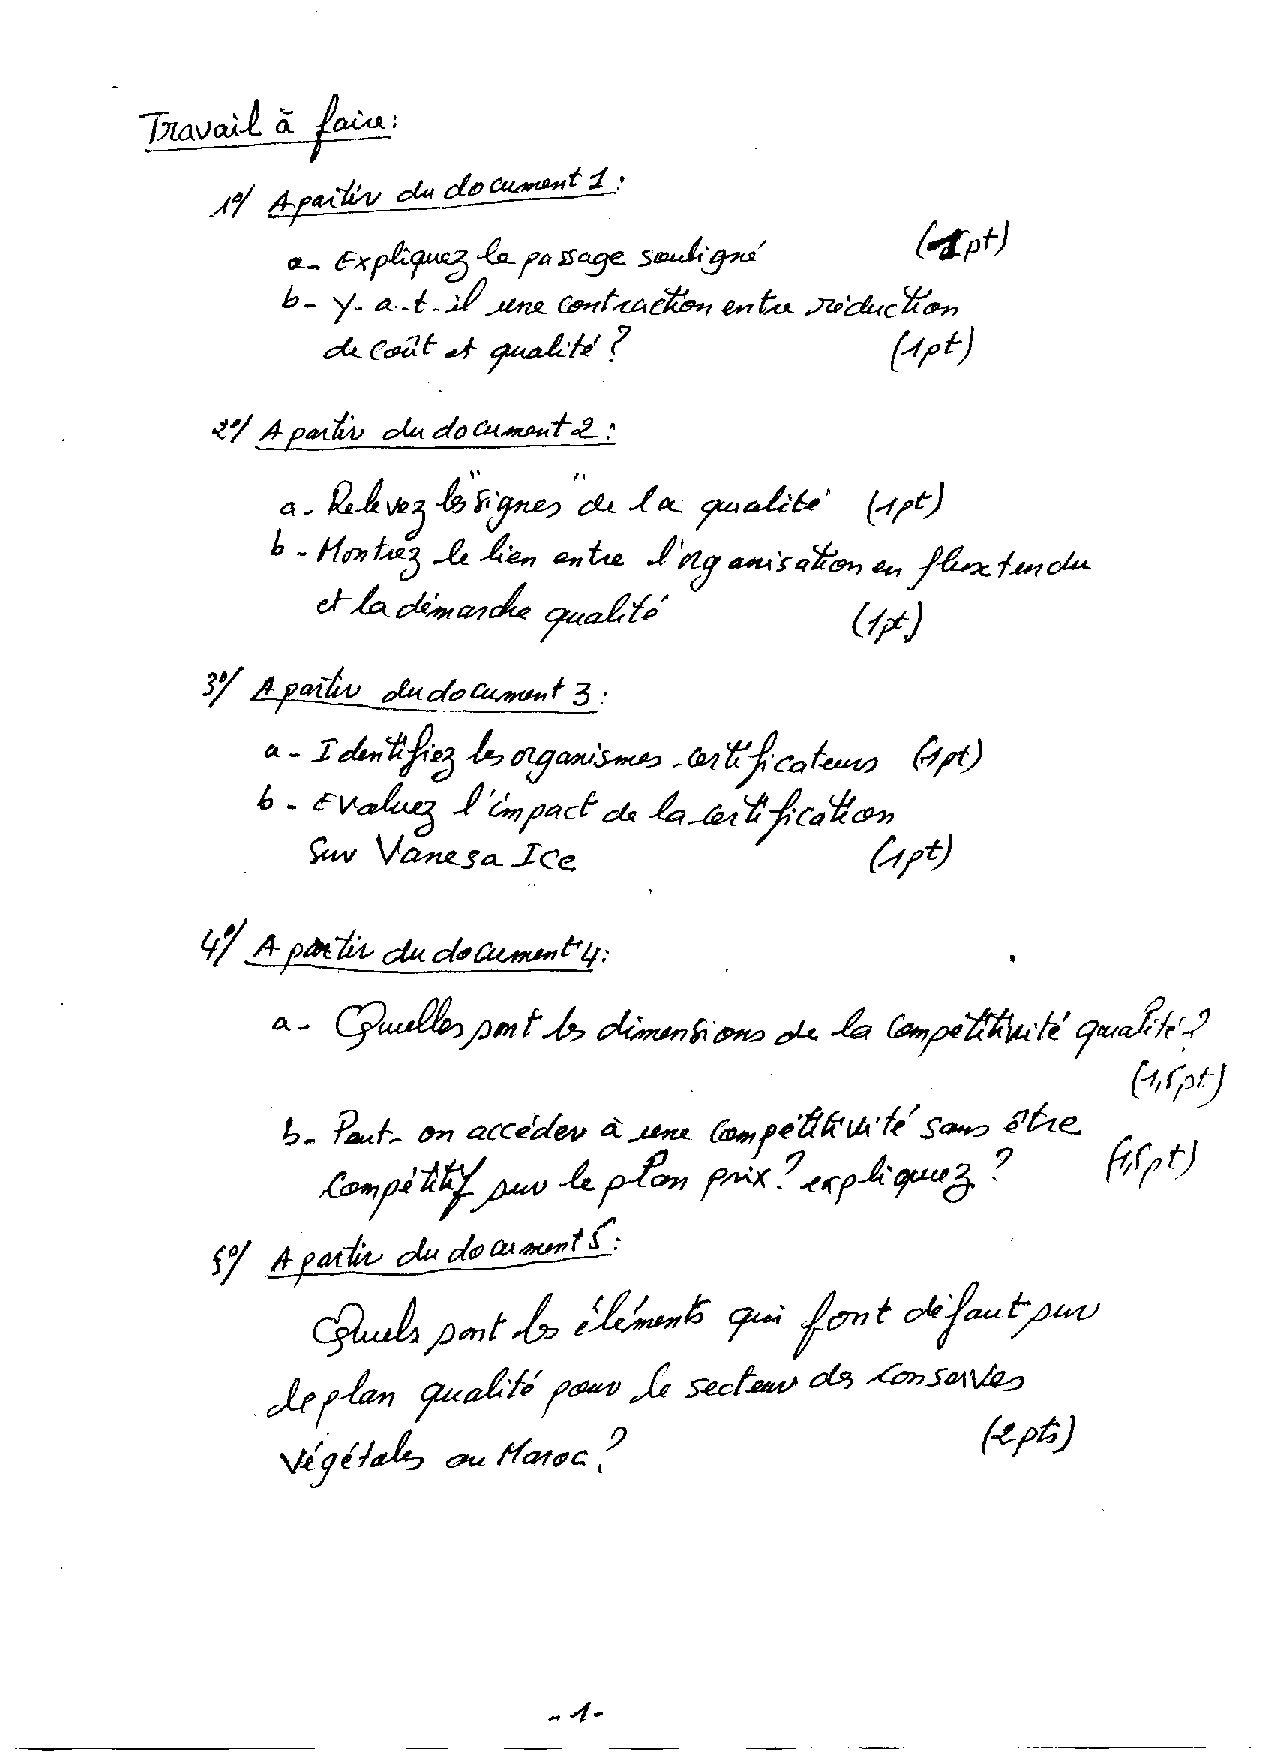 Travail à faire:
1°/ A partir du document 1 :
a- Expliquez le passage souligné (1pt)
b- Y-a-t-il une contraction entre réduction
de coût et qualité ? (1pt)
2°/ A partir du document 2 :
a- Relevez les "signes" de la qualité (1pt)
b- Montrez le lien entre l'organisation en flux tendu
et la démarche qualité (1pt)
3°/ A partir du document 3 :
a- Identifiez les organismes certificateurs (1pt)
b- Evaluez l'impact de la certification
sur Vanesa Ice (1pt)
4°/ A partir du document 4:
a- Quelles sont les dimensions de la compétitivité qualité ?
(1,5pt)
b- Peut-on accéder à une compétitivité sans être
compétitif sur le plan prix ? expliquez ? (1,5pt)
5°/ A partir du document 5 :
Quels sont les éléments qui font défaut sur
le plan qualité pour le secteur des conserves
végétales au Maroc ? (2pts)
-1-